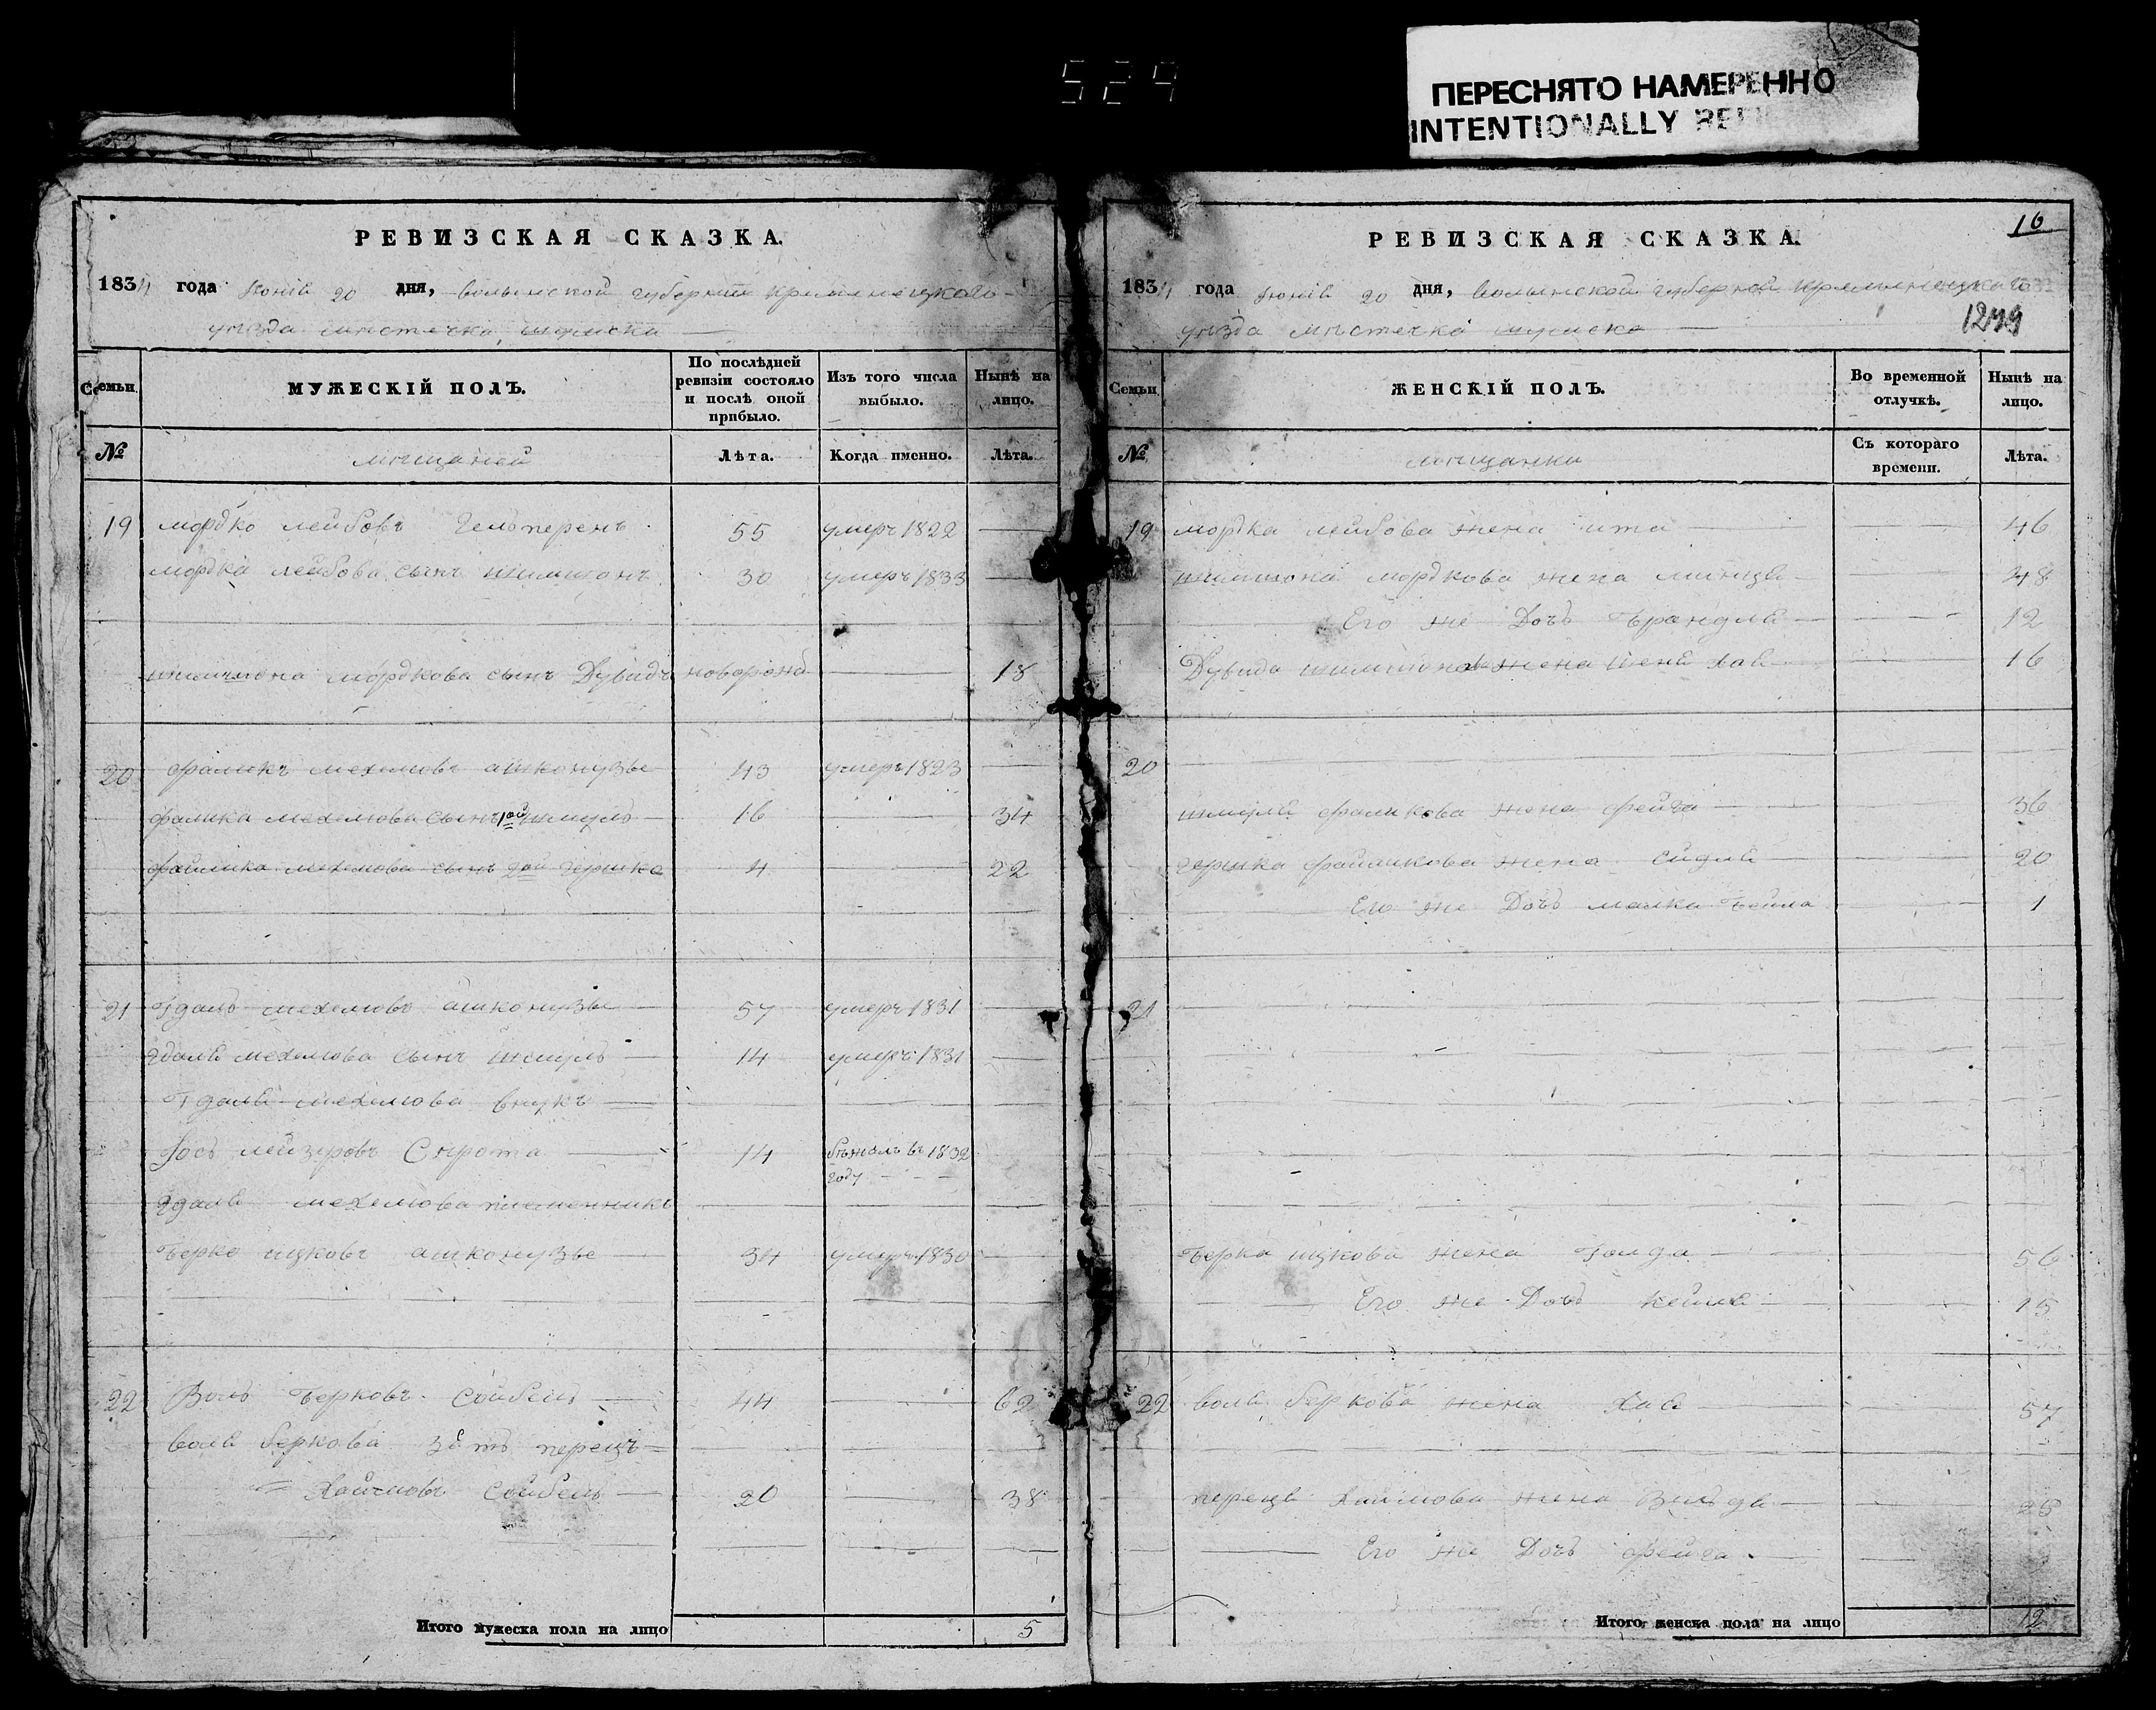 529
ПЕРЕСНЯТО НАМЕРЕННО
INTENTIONALLY
РЕВИЗСКАЯ СКАЗКА.
1834 года Июня 20 дня, волынской губернии кременецкаго
уезда местечка шумска
Семьи
МУЖЕСКІЙ ПОЛЪ.
По послѣдней ревизіи состояло и послѣ оной прибыло.
Изъ того числа выбыло.
Нынѣ на лицо.
№
мещаней
Лѣта.
Когда именно.
Лѣта.
19 мордко лейбовъ Гельперенъ 55 умеръ 1822
мордка лейбова сынъ шимшонъ 30 умеръ 1833
шимшона мордкова сынъ Дувидъ новорожд 18
20 фаликъ мехелювъ ашконузъе 43 умеръ 1823
фалика мехелюва сынъ 1ой шмуль 16 34
файлика мехелюва сынъ 2ой гершко 4 22
21 Гдаль мехелювъ ашконузъе 57 умеръ 1831
Гдаля мехелюва сынъ шмуль 14 умеръ 1831
Гдаля мехелюва внукъ
Іось лейзуровъ Сирота 14 бежалъ въ 1832
году
Гдаля мехелюва племенникъ
Берко ицковъ ашконузъе 34 умеръ 1830
22 Воль Берковъ Сойбель 44 62
воля беркова зять перецъ
Хаимовъ Сойбель 20 38
Итого мужеска пола на лицо 5
16
РЕВИЗСКАЯ СКАЗКА.
1834 года Июня 20 дня, волынской губернии кременецкаго
уезда местечка шумска
1249
Семьи
ЖЕНСКІЙ ПОЛЪ.
Во временной отлучкѣ.
Нынѣ на лицо.
№
мещанки
Съ котораго времени.
Лѣта.
19 мордка лейбова жена ита 46
шимшона мордкова жена минця 48
Его же Дочь Брандля 12
Дувида шимшонова жена Хая 16
20
шмуля фаликова жена фейга 36
гершка файликова жена сидля 20
Его же Дочь малка Бейла 1
21
Берка ицкова жена Голда 56
Его же Дочь кейля 15
22 воля беркова жена Хася 57
переця Хаимова жена 28
Его же Дочь фейга
Итого женска пола на лицо 12